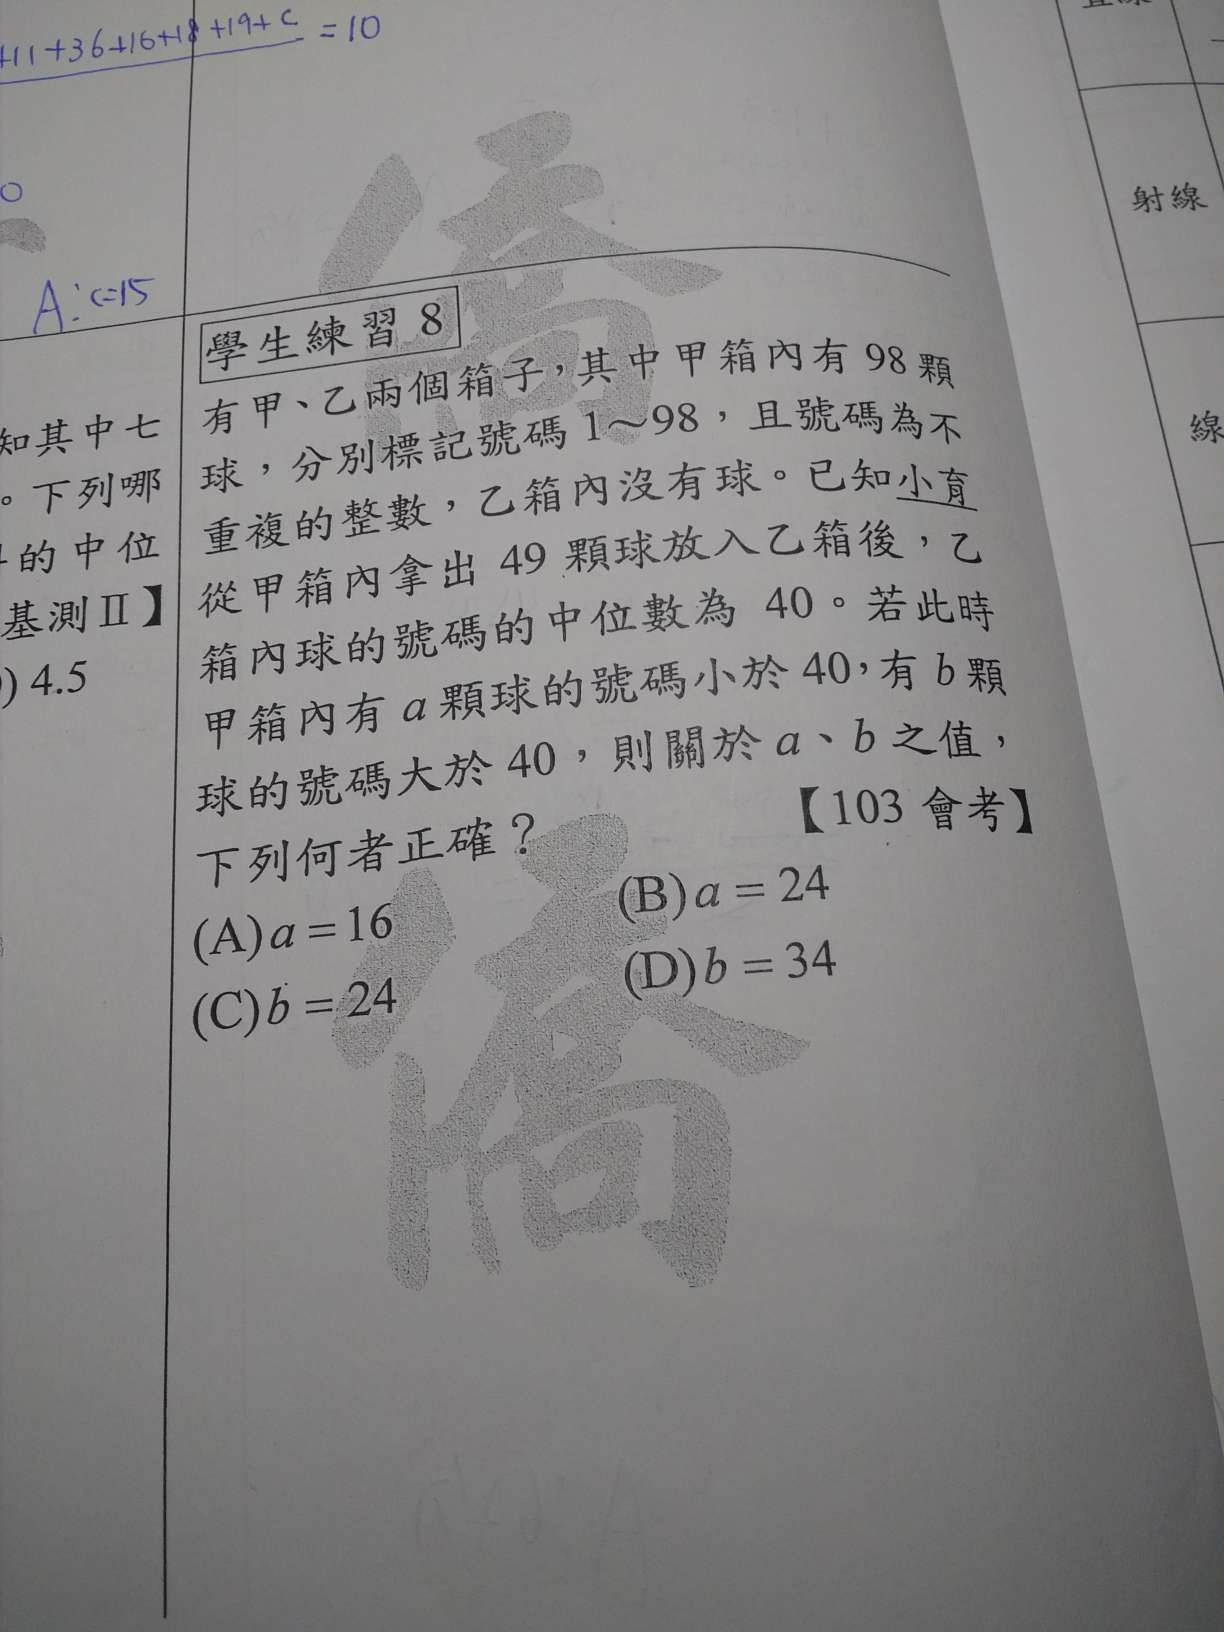 +11+36+16+18+19+c = 10
0
A: c=15
知其中七
。下列哪
的中位
基測Ⅱ】
) 4.5
學生練習 8
有甲、乙兩個箱子，其中甲箱內有 98 顆
球，分別標記號碼 1～98，且號碼為不
重複的整數，乙箱內沒有球。已知小育
從甲箱內拿出 49 顆球放入乙箱後，乙
箱內球的號碼的中位數為 40。若此時
甲箱內有 a 顆球的號碼小於 40，有 b 顆
球的號碼大於 40，則關於 a、b 之值，
下列何者正確？ 【103 會考】
(A) a = 16 (B) a = 24
(C) b = 24 (D) b = 34
僑
僑
射線
線